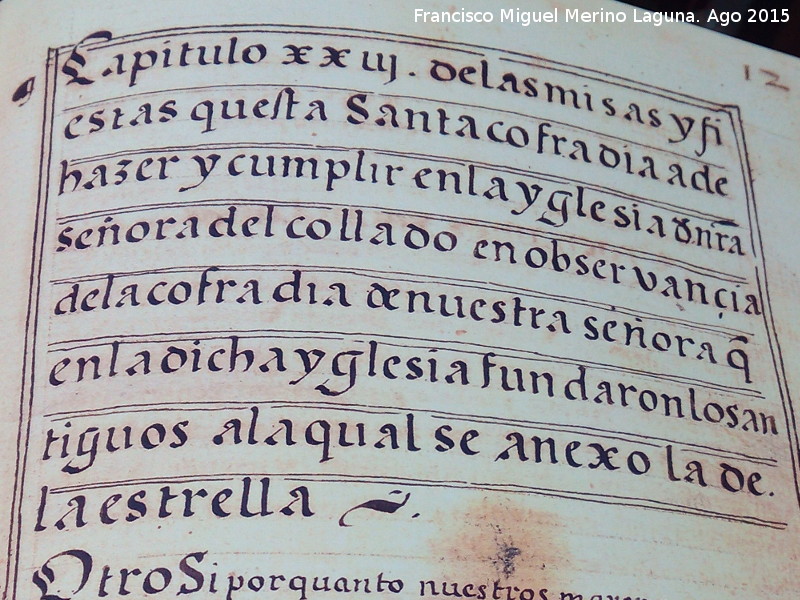 Francisco Miguel Merino Laguna. Ago 2015
12
Capitulo xxuj. delas misas y fi
estas questa Santa cofradia a de
hazer y cumplir enla yglesia d nr̃a
señora del collado en observançia
dela cofradia de nuestra señora q̃
enla dicha yglesia fundaron los an
tiguos ala qual se anexo la de.
la estrella ~.
Otro Si por quanto nuestros